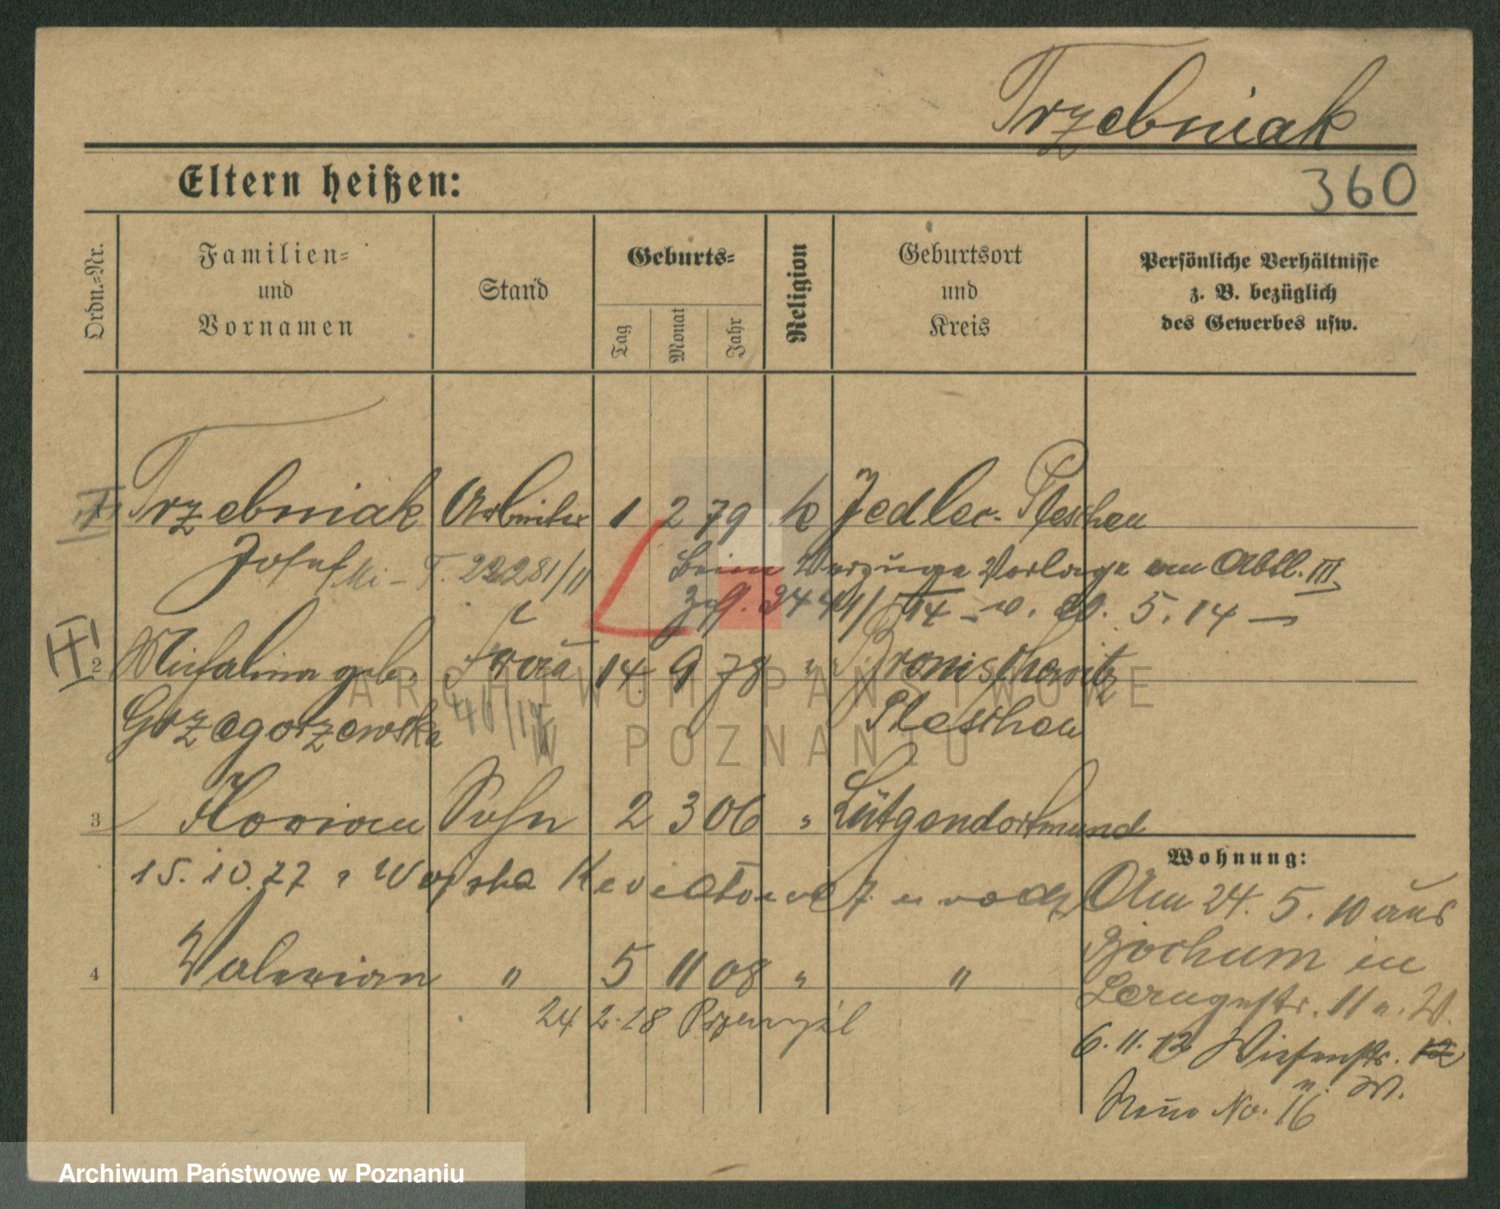 Trzebniak
Eltern heißen:
360
Ordn.-Nr.
Familien-
und
Vornamen
Stand
Geburts-
Tag
Monat
Jahr
Religion
Geburtsort
und
Kreis
Persönliche Verhältnisse
z. B. bezüglich
des Gewerbes usw.
1 Trzebniak Arbeiter 1 2 79 k Jedlec. Pleschen
Josef T. 22281/11 Beim Verzuge Vorlage an Abtl. III
5. 14 —
II 2 Michalina geb. Frau 14 9 78 " Bronischewitz
Grzegorzewska Pleschen
3 Florian Sohn 2 3 06 " Lütgendortmund
15.10.27
Wohnung:
Am 24. 5. 10 aus
Bochum in
11 a. W.
4 Valerian " 5 11 08 " "
24 2. 18 Przemysl
6. 11. 12 Wiesenstr. 12
n. W.
Neue No. 16
ARCHIWUM PAŃSTWOWE
W POZNANIU
Archiwum Państwowe w Poznaniu